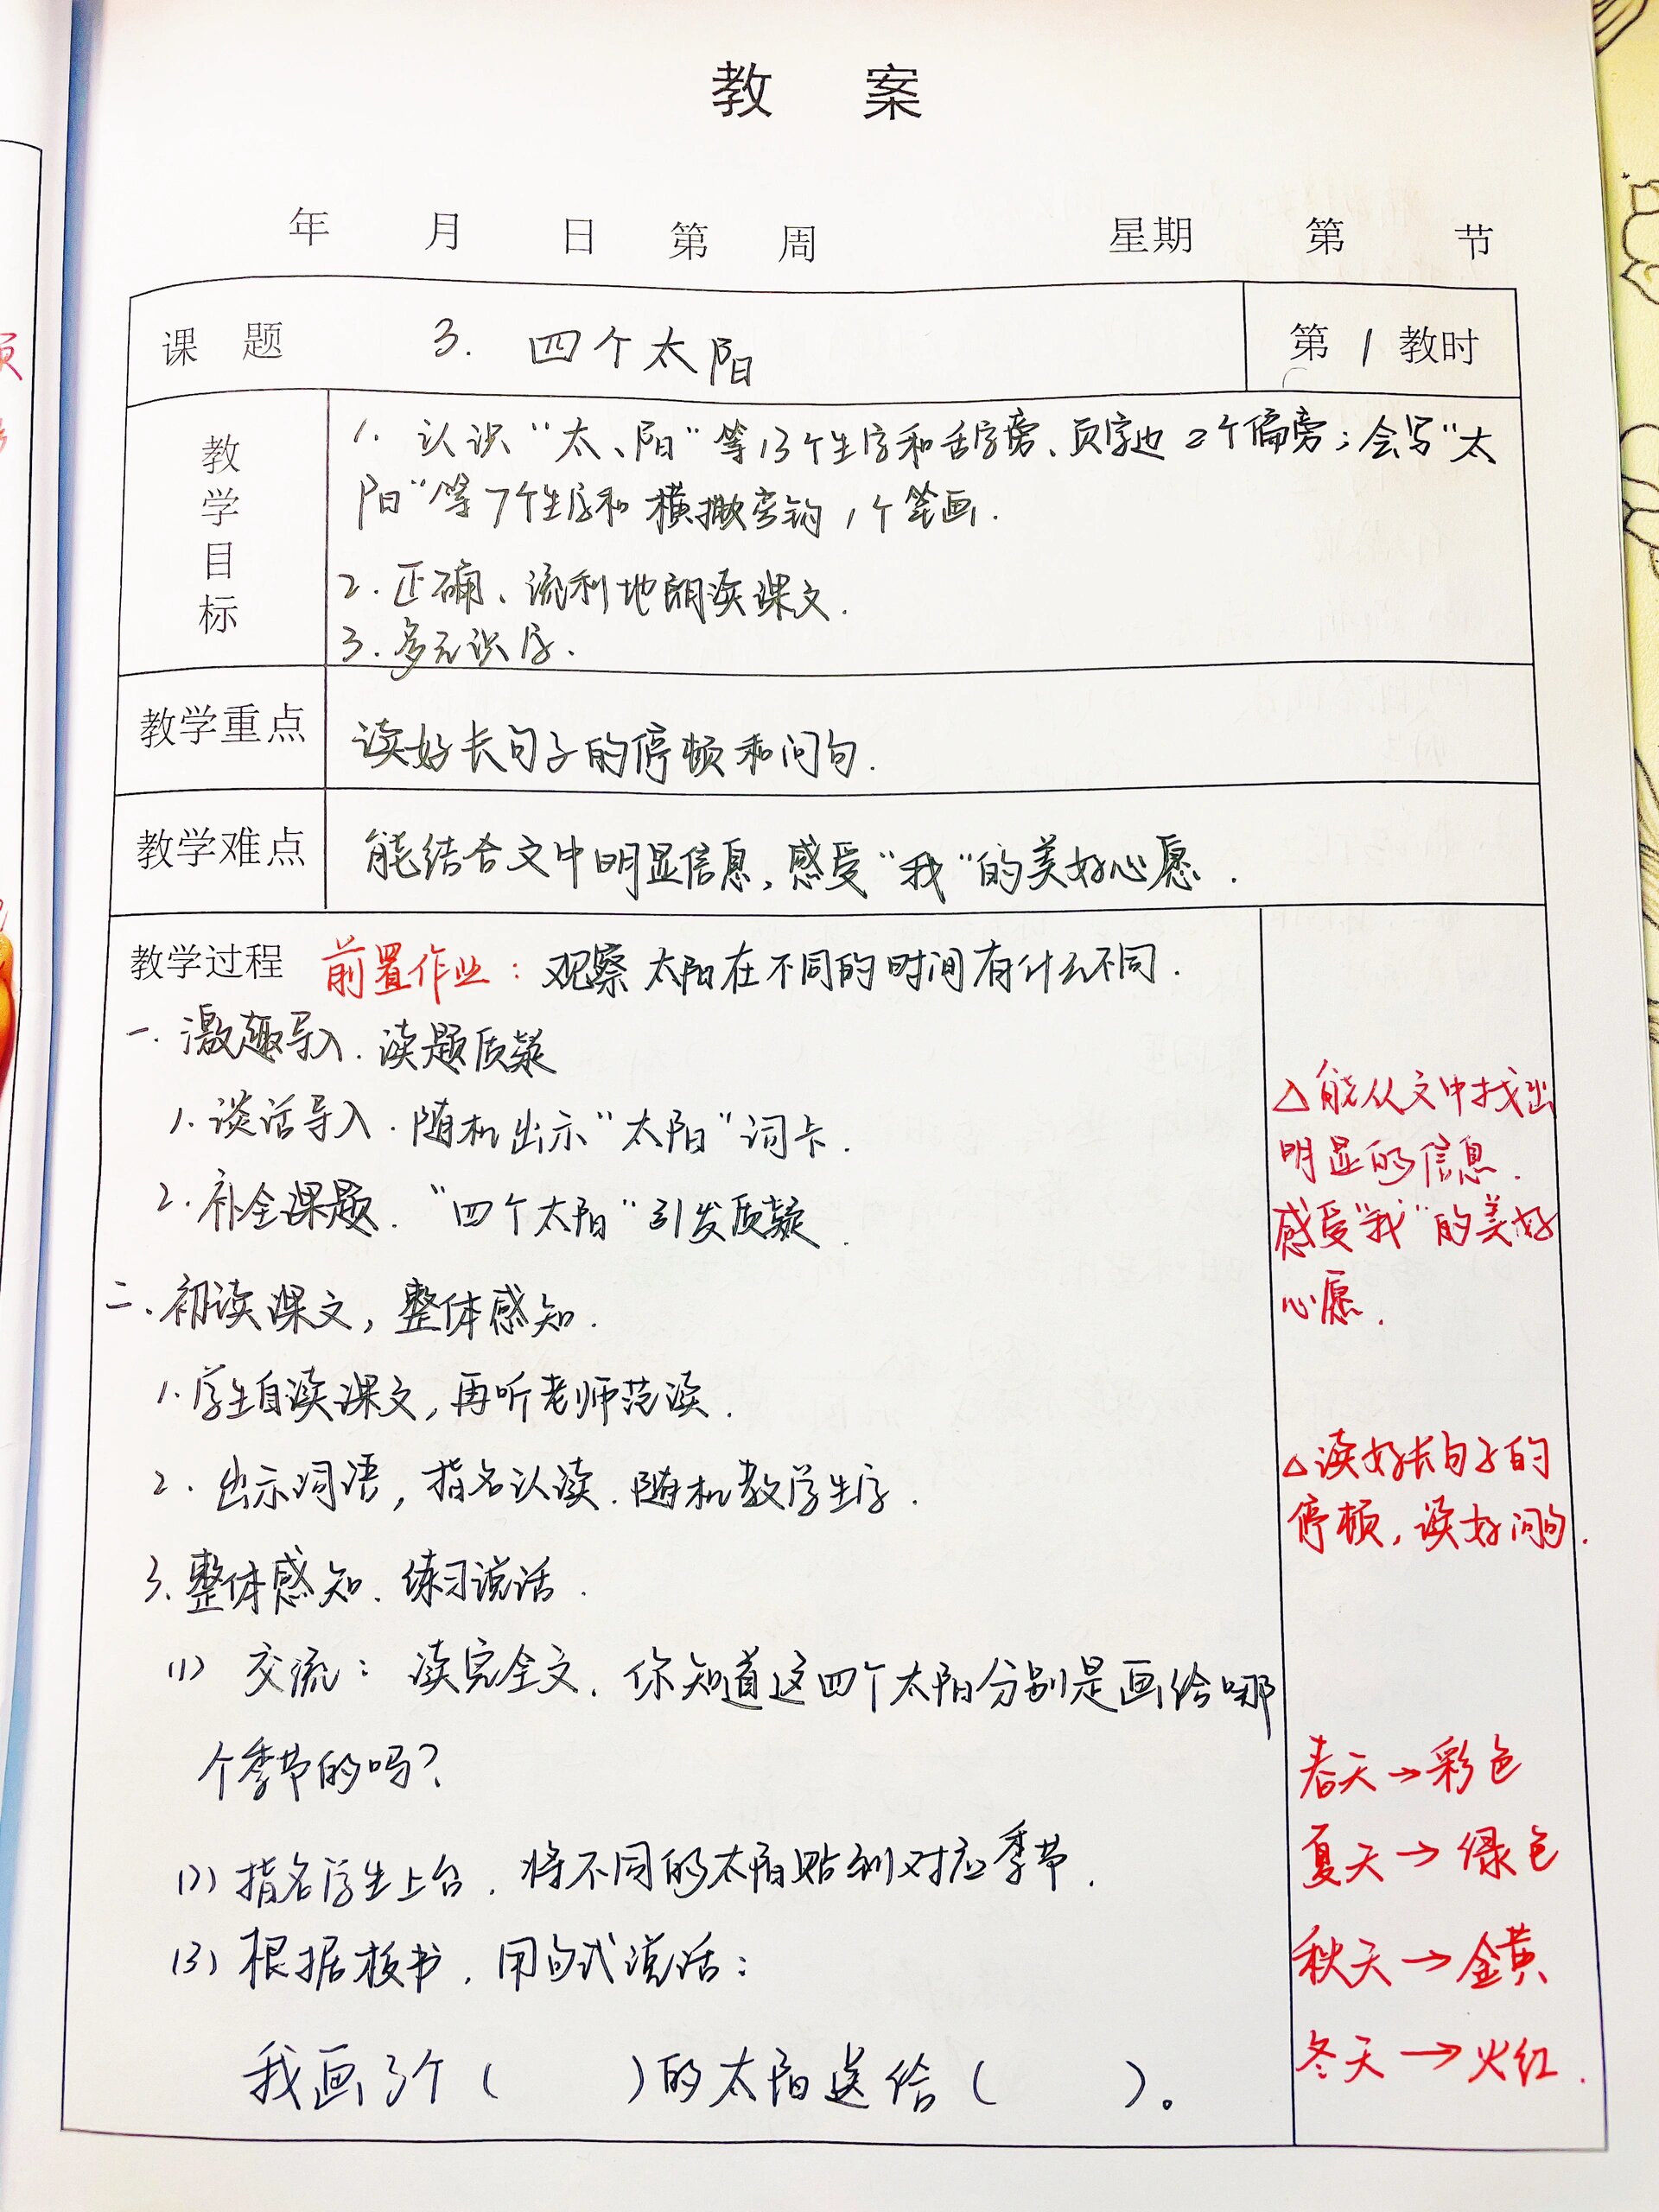 教 案
年 月 日 第 周 星期 第 节
课 题 3. 四个太阳 第 1 教时
教学目标
1. 认识“太、阳”等13个生字和舌字旁、页字边2个偏旁；会写“太
阳”等7个生字和横撇弯钩1个笔画.
2. 正确、流利地朗读课文.
3. 多元识字.
教学重点 读好长句子的停顿和问句.
教学难点 能结合文中明显信息,感受“我”的美好心愿.
教学过程 前置作业：观察太阳在不同的时间有什么不同.
一. 激趣导入. 读题质疑
1. 谈话导入. 随机出示“太阳”词卡.
2. 补全课题. “四个太阳”引发质疑.
二、初读课文, 整体感知.
1. 学生自读课文, 再听老师范读.
2. 出示词语, 指名认读. 随机教学生字.
3. 整体感知. 练习说话.
(1) 交流：读完全文. 你知道这四个太阳分别是画给哪
个季节的吗?
(2) 指名学生上台. 将不同的太阳贴到对应季节.
(3) 根据板书. 用句式说话：
我画了个（ ）的太阳送给（ ）。
△能从文中找出
明显的信息.
感受“我”的美好
心愿.
△读好长句子的
停顿, 读好问句.
春天→彩色
夏天→绿色
秋天→金黄
冬天→火红.